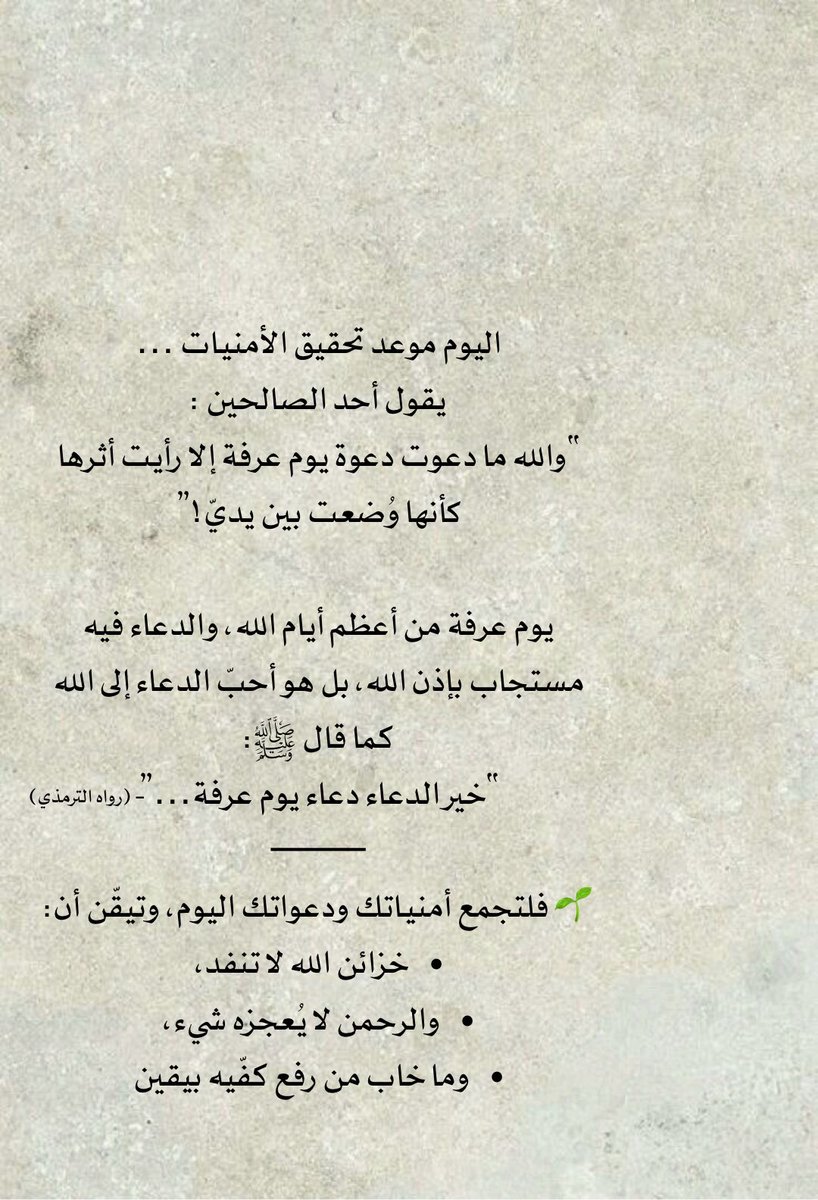 اليوم موعد تحقيق الأمنيات ...
يقول أحد الصالحين :
"والله ما دعوت دعوة يوم عرفة إلا رأيت أثرها
كأنها وُضعت بين يديّ!"
يوم عرفة من أعظم أيام الله، والدعاء فيه
مستجاب بإذن الله، بل هو أحبّ الدعاء إلى الله
كما قال ﷺ:
"خير الدعاء دعاء يوم عرفة..." - (رواه الترمذي)
🌱 فلتجمع أمنياتك ودعواتك اليوم، وتيقّن أن:
• خزائن الله لا تنفد،
• والرحمن لا يُعجزه شيء،
• وما خاب من رفع كفّيه بيقين